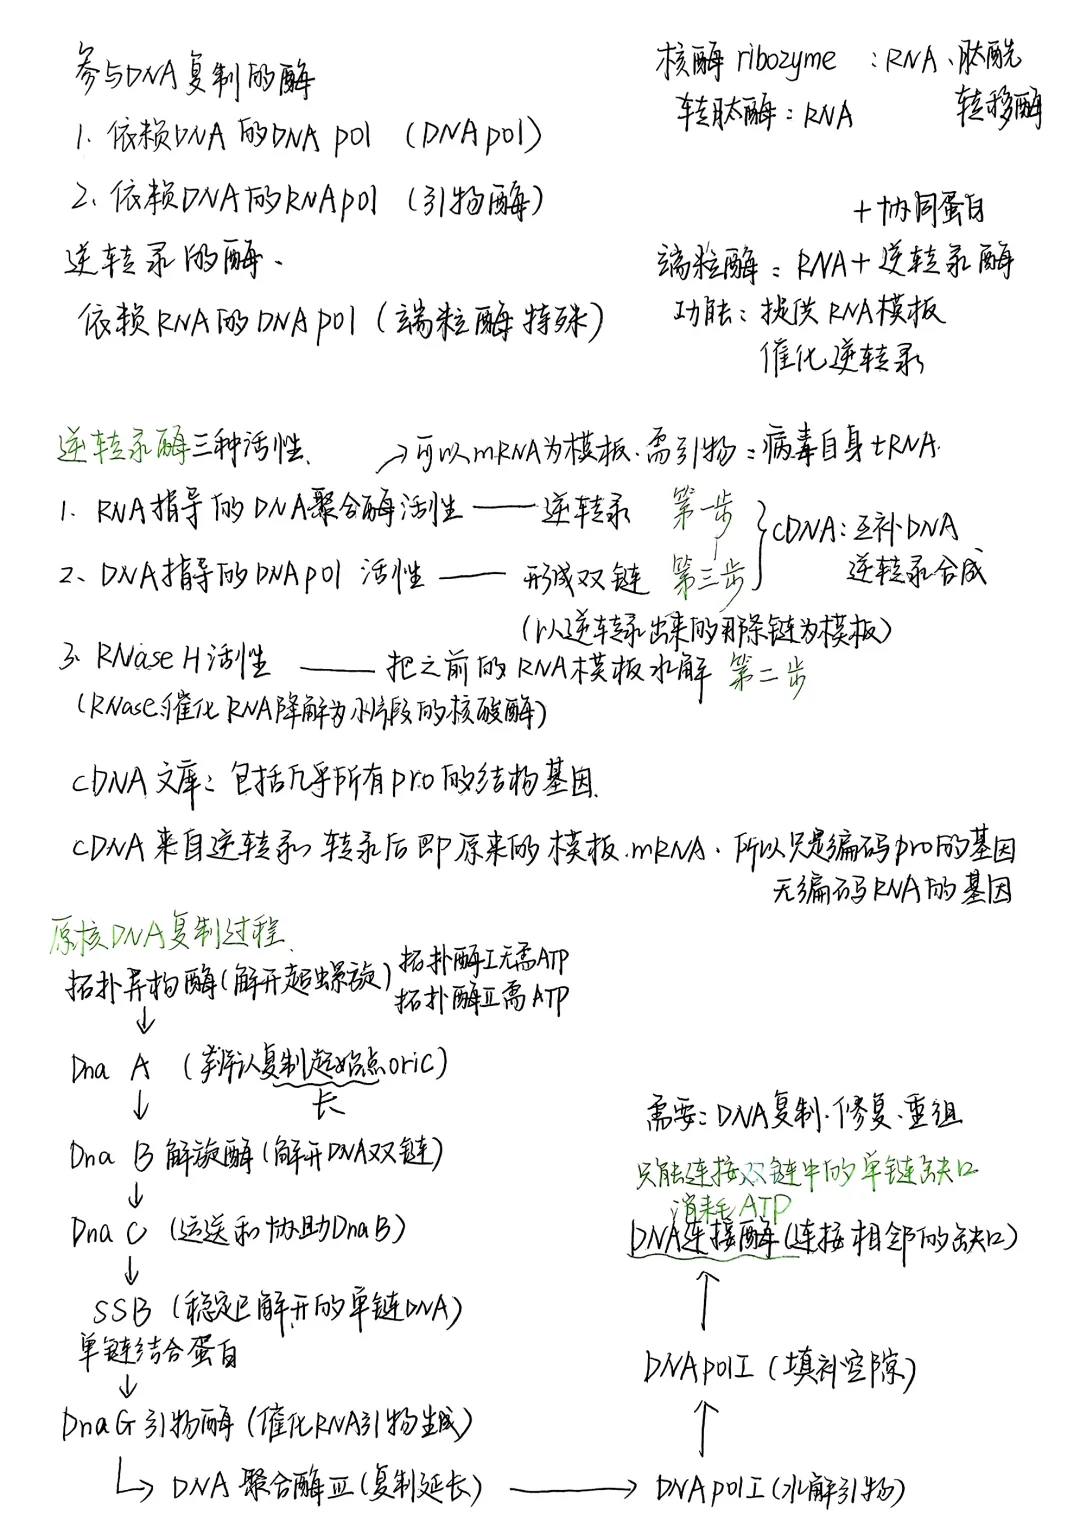 参与DNA复制的酶
1. 依赖DNA的DNA pol （DNA pol）
2. 依赖DNA的RNA pol （引物酶）
逆转录的酶、
依赖RNA的DNA pol（端粒酶特殊）
核酶 ribozyme ：RNA、肽酰转移酶
转肽酶：RNA
+协同蛋白
端粒酶：RNA+逆转录酶
功能：提供RNA模板
催化逆转录
逆转录酶三种活性.
→可以mRNA为模板.需引物：病毒自身tRNA.
1. RNA指导的DNA聚合酶活性 —— 逆转录 第一步
2、DNA指导的DNA pol 活性 —— 形成双链 第三步
cDNA：互补DNA
逆转录合成
（以逆转录出来的那条链为模板）
3. RNase H活性 —— 把之前的RNA模板水解 第二步
（RNase:催化RNA降解为小片段的核酸酶）
cDNA文库：包括几乎所有pro的结构基因.
cDNA来自逆转录，转录后即原来的模板.mRNA.所以只是编码pro的基因
无编码RNA的基因
原核DNA复制过程.
拓扑异构酶（解开超螺旋）
拓扑酶I无需ATP
拓扑酶II需ATP
↓
Dna A （辨认复制起始点oriC）
↓ 长
Dna B 解旋酶（解开DNA双链）
↓
Dna C （运送和协助DnaB）
↓
SSB （稳定已解开的单链DNA）
单链结合蛋白
↓
DnaG引物酶（催化RNA引物生成）
↳ DNA聚合酶III（复制延长） ——→ DNA pol I（水解引物）
↑
DNA pol I（填补空隙）
↑
DNA连接酶（连接相邻的缺口）
消耗ATP
只能连接双链中的单链缺口
需要：DNA复制.修复.重组